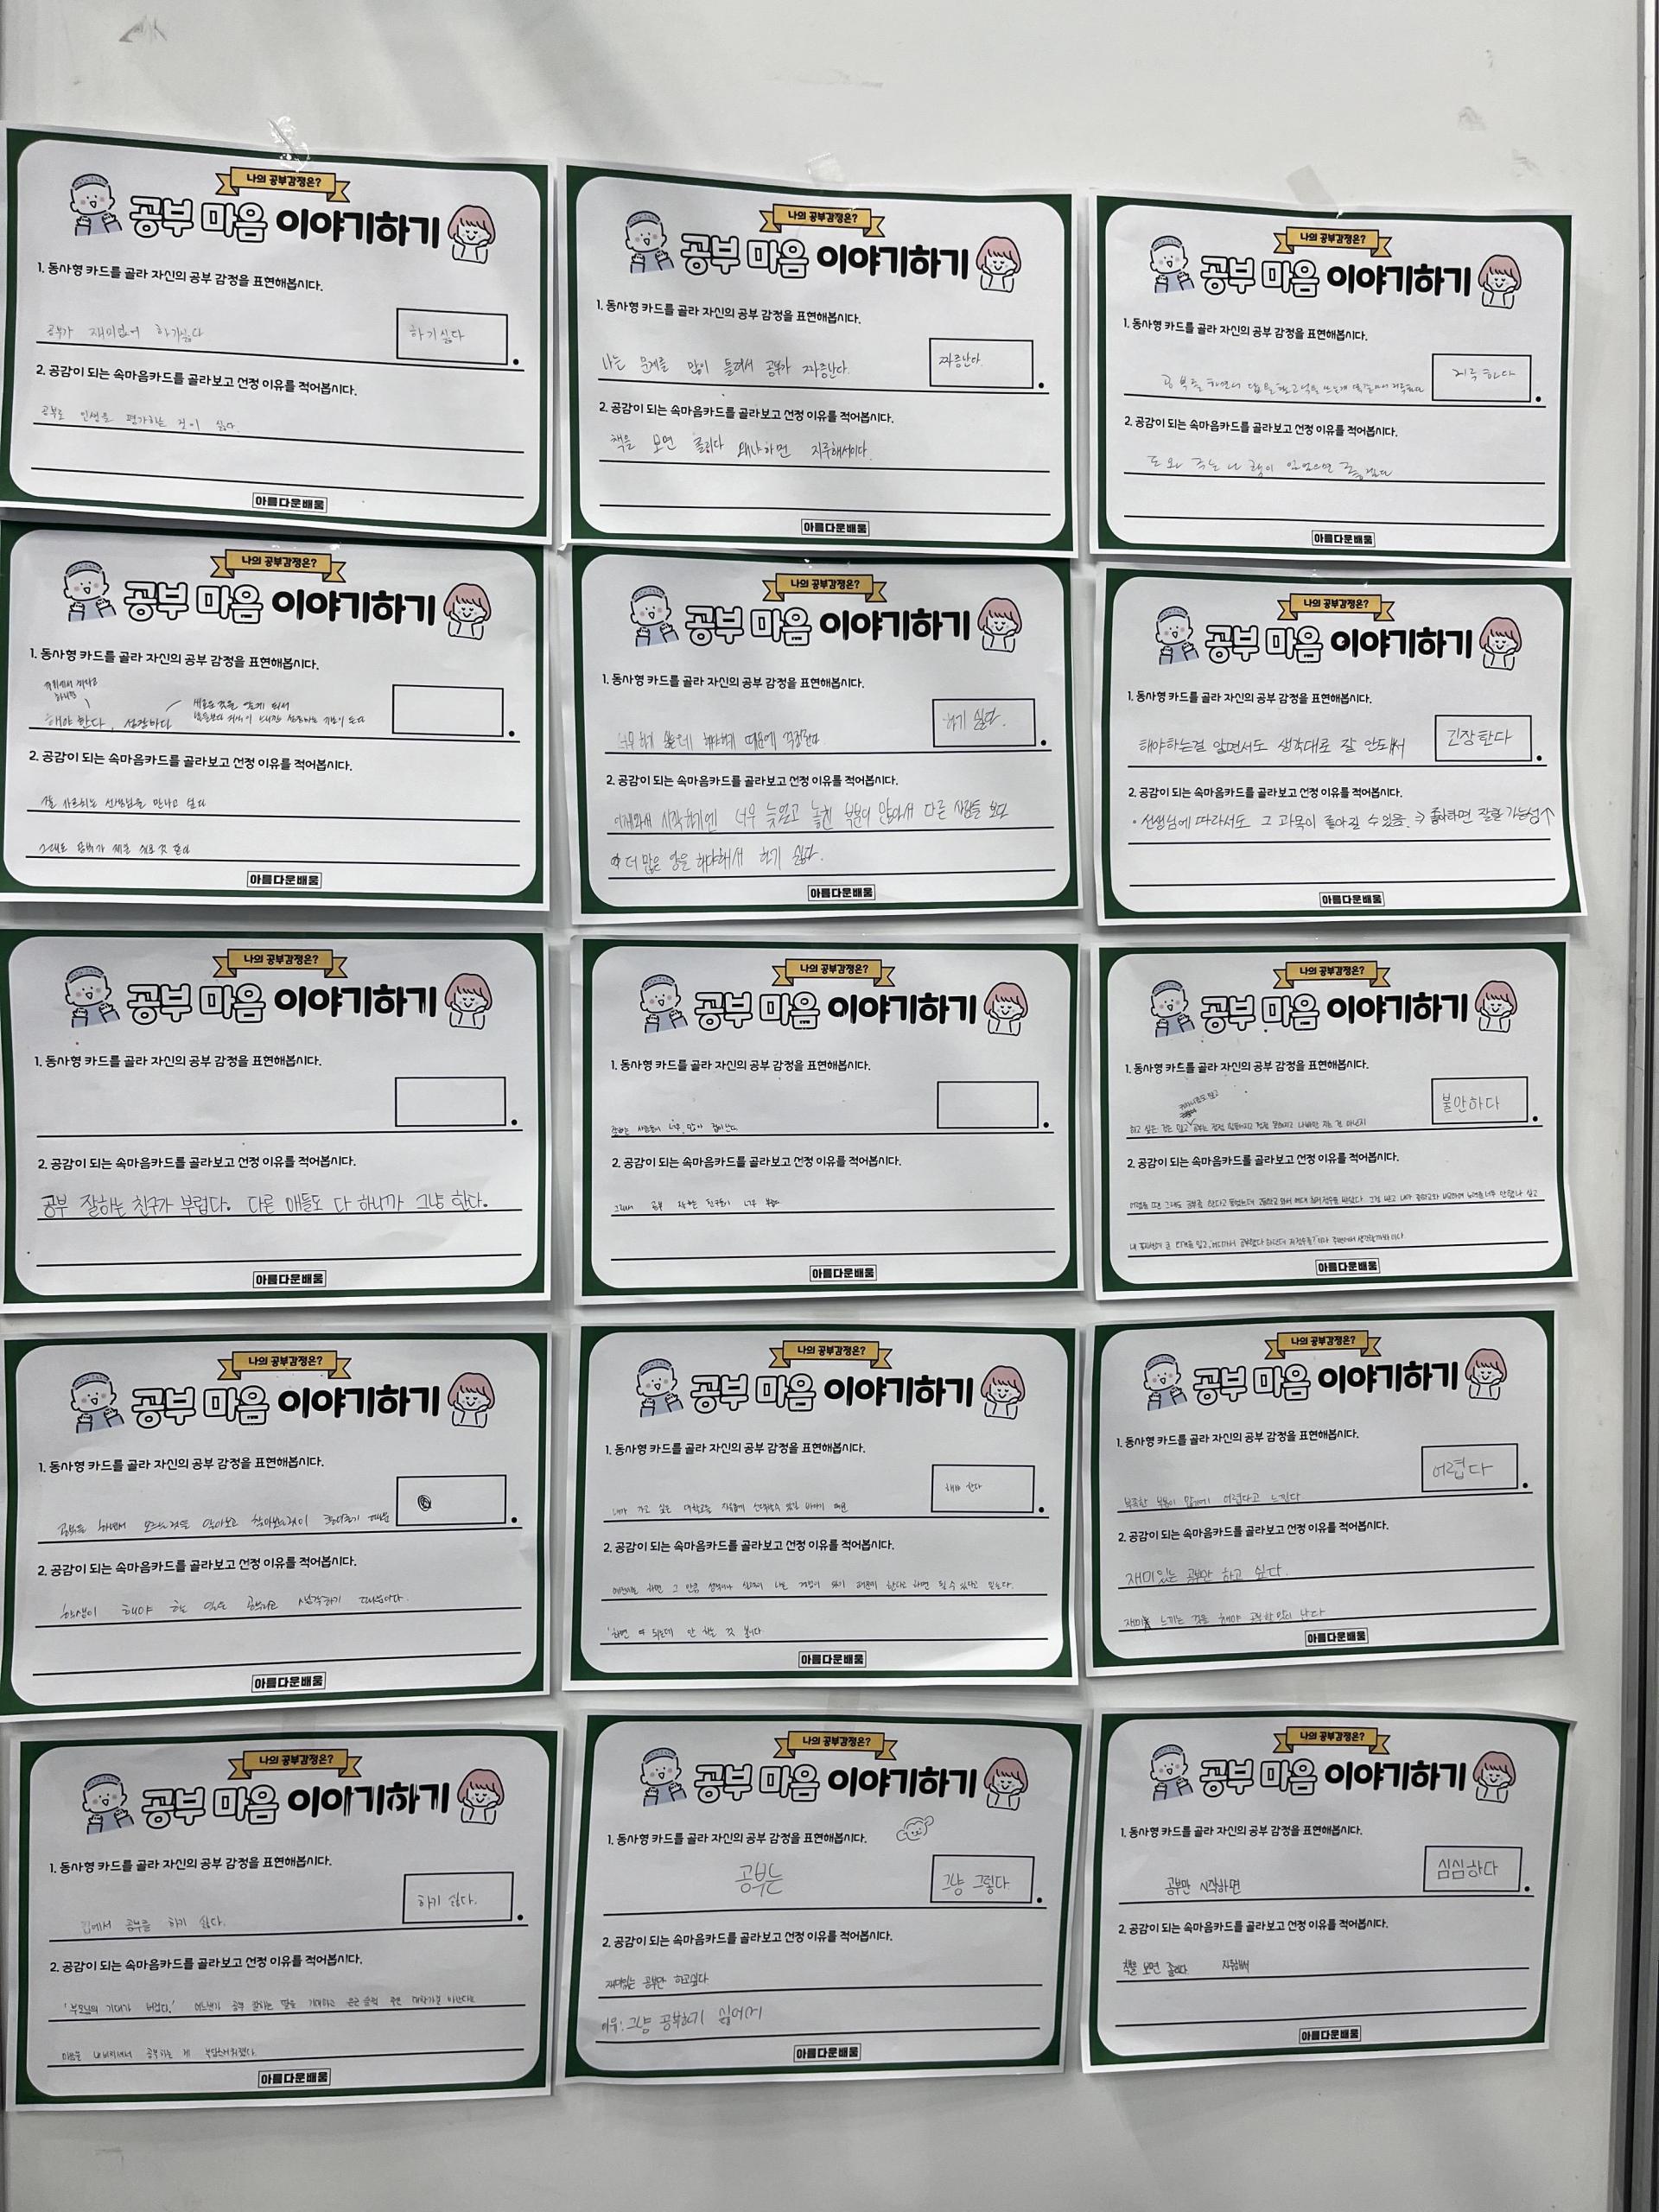 나의 공부감정은?
공부 마음 이야기하기
1. 동사형 카드를 골라 자신의 공부 감정을 표현해봅시다.
공부가 재미없어 하기싫다
하기싫다
2. 공감이 되는 속마음카드를 골라보고 선정 이유를 적어봅시다.
공부로 인생을 평가하는 것이 싫다.
아름다운배움
나의 공부감정은?
공부 마음 이야기하기
1. 동사형 카드를 골라 자신의 공부 감정을 표현해봅시다.
나는 문제를 많이 틀려서 공부가 짜증난다.
짜증난다.
2. 공감이 되는 속마음카드를 골라보고 선정 이유를 적어봅시다.
책을 보면 졸리다 왜냐하면 지루해서이다.
아름다운배움
나의 공부감정은?
공부 마음 이야기하기
1. 동사형 카드를 골라 자신의 공부 감정을 표현해봅시다.
공부를 하면서 답을
지루하다
2. 공감이 되는 속마음카드를 골라보고 선정 이유를 적어봅시다.
도와 주는 사람이 있었으면 좋겠다
아름다운배움
나의 공부감정은?
공부 마음 이야기하기
1. 동사형 카드를 골라 자신의 공부 감정을 표현해봅시다.
해야 한다, 성장하다
새로운 것을 알게 되서
2. 공감이 되는 속마음카드를 골라보고 선정 이유를 적어봅시다.
잘 가르치는 선생님을 만나고 싶다
그대로 공부가 제일 쉬운 것 같다
아름다운배움
나의 공부감정은?
공부 마음 이야기하기
1. 동사형 카드를 골라 자신의 공부 감정을 표현해봅시다.
너무 하기 싫은데 해야하기 때문에 걱정된다
하기 싫다.
2. 공감이 되는 속마음카드를 골라보고 선정 이유를 적어봅시다.
이제와서 시작하기엔 너무 늦었고 놓친 부분이 많아서 다른 사람들 보다
더 많은 양을 해야해서 하기 싫다.
아름다운배움
나의 공부감정은?
공부 마음 이야기하기
1. 동사형 카드를 골라 자신의 공부 감정을 표현해봅시다.
해야하는걸 알면서도 생각대로 잘 안돼서
긴장한다
2. 공감이 되는 속마음카드를 골라보고 선정 이유를 적어봅시다.
• 선생님에 따라서도 그 과목이 좋아질 수 있음. ⇒ 좋아하면 잘할 가능성↑
아름다운배움
나의 공부감정은?
공부 마음 이야기하기
1. 동사형 카드를 골라 자신의 공부 감정을 표현해봅시다.
2. 공감이 되는 속마음카드를 골라보고 선정 이유를 적어봅시다.
공부 잘하는 친구가 부럽다. 다른 애들도 다 하니까 그냥 한다.
아름다운배움
나의 공부감정은?
공부 마음 이야기하기
1. 동사형 카드를 골라 자신의 공부 감정을 표현해봅시다.
잘하는 사람들이 너무 많아 겁이난다
2. 공감이 되는 속마음카드를 골라보고 선정 이유를 적어봅시다.
그래서 공부 잘하는 친구들이 너무 부럽다
아름다운배움
나의 공부감정은?
공부 마음 이야기하기
1. 동사형 카드를 골라 자신의 공부 감정을 표현해봅시다.
하고 싶은 것은 많고
불안하다
2. 공감이 되는 속마음카드를 골라보고 선정 이유를 적어봅시다.
아름다운배움
나의 공부감정은?
공부 마음 이야기하기
1. 동사형 카드를 골라 자신의 공부 감정을 표현해봅시다.
공부를 하면서 모르는것을 알아보고 찾아보는것이 때문
2. 공감이 되는 속마음카드를 골라보고 선정 이유를 적어봅시다.
학생이 해야 할 일은 공부라고 생각하기 때문이다.
아름다운배움
나의 공부감정은?
공부 마음 이야기하기
1. 동사형 카드를 골라 자신의 공부 감정을 표현해봅시다.
내가 가고 싶은 대학교를
해야 한다
2. 공감이 되는 속마음카드를 골라보고 선정 이유를 적어봅시다.
하면 그 만큼 한다고 하면 될 수 있다고 믿는다.
아름다운배움
나의 공부감정은?
공부 마음 이야기하기
1. 동사형 카드를 골라 자신의 공부 감정을 표현해봅시다.
부족한 부분이 많기에 어렵다고 느낀다
어렵다
2. 공감이 되는 속마음카드를 골라보고 선정 이유를 적어봅시다.
재미있는 공부만 하고 싶다.
느끼는 것을 해야 공부할 맛이 난다
아름다운배움
나의 공부감정은?
공부 마음 이야기하기
1. 동사형 카드를 골라 자신의 공부 감정을 표현해봅시다.
집에서 공부를 하기 싫다.
하기 싫다.
2. 공감이 되는 속마음카드를 골라보고 선정 이유를 적어봅시다.
'부모님의 기대가 버겁다.' 어느샌가 공부 잘하는 딸을 기대하고 은근슬쩍 좋은 대학가길 바란다는
마음을 내비쳐서 공부하는 게 부담스러워졌다.
아름다운배움
나의 공부감정은?
공부 마음 이야기하기
1. 동사형 카드를 골라 자신의 공부 감정을 표현해봅시다.
공부는
그냥 그렇다.
2. 공감이 되는 속마음카드를 골라보고 선정 이유를 적어봅시다.
재미있는 공부만 하고싶다
이유: 그냥 공부하기 싫어서
아름다운배움
나의 공부감정은?
공부 마음 이야기하기
1. 동사형 카드를 골라 자신의 공부 감정을 표현해봅시다.
공부만 시작하면
심심하다
2. 공감이 되는 속마음카드를 골라보고 선정 이유를 적어봅시다.
책을 보면 졸리다. 지루해서
아름다운배움